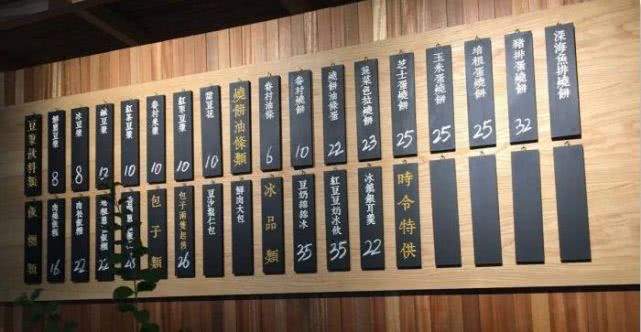 豆漿飲料類
鮮磨豆漿 8
冰豆漿 8
鹹豆漿 12
紅茶豆漿 10
眷村米漿 10
紅棗豆漿 10
甜豆花 10
燒餅油條類
眷村油條 6
眷村燒餅 10
燒餅油條蛋 22
蔬菜色拉燒餅 23
芝士蛋燒餅 25
玉米蛋燒餅 25
培根蛋燒餅 25
豬排蛋燒餅 32
深海魚排燒餅
飯糰類
飯糰 16
肉鬆飯糰 22
飯糰 22
包子類
包子兩隻起售 26
豆沙鬆仁包
鮮肉大包
冰品類
豆奶搖搖冰 35
紅豆豆奶冰飲 35
冰鎮銀耳羹 22
時令特供